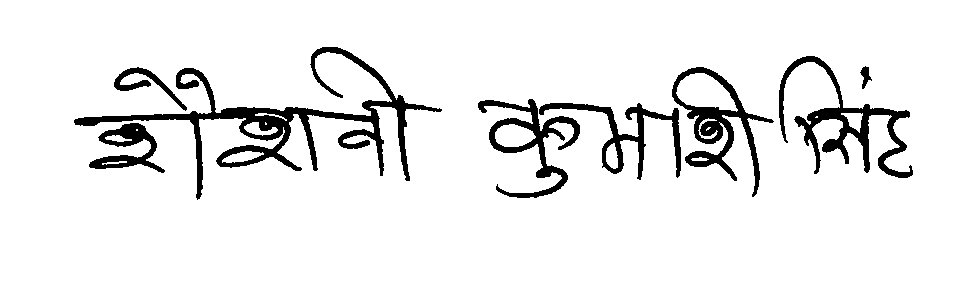 शैशवी कुमारी सिंह